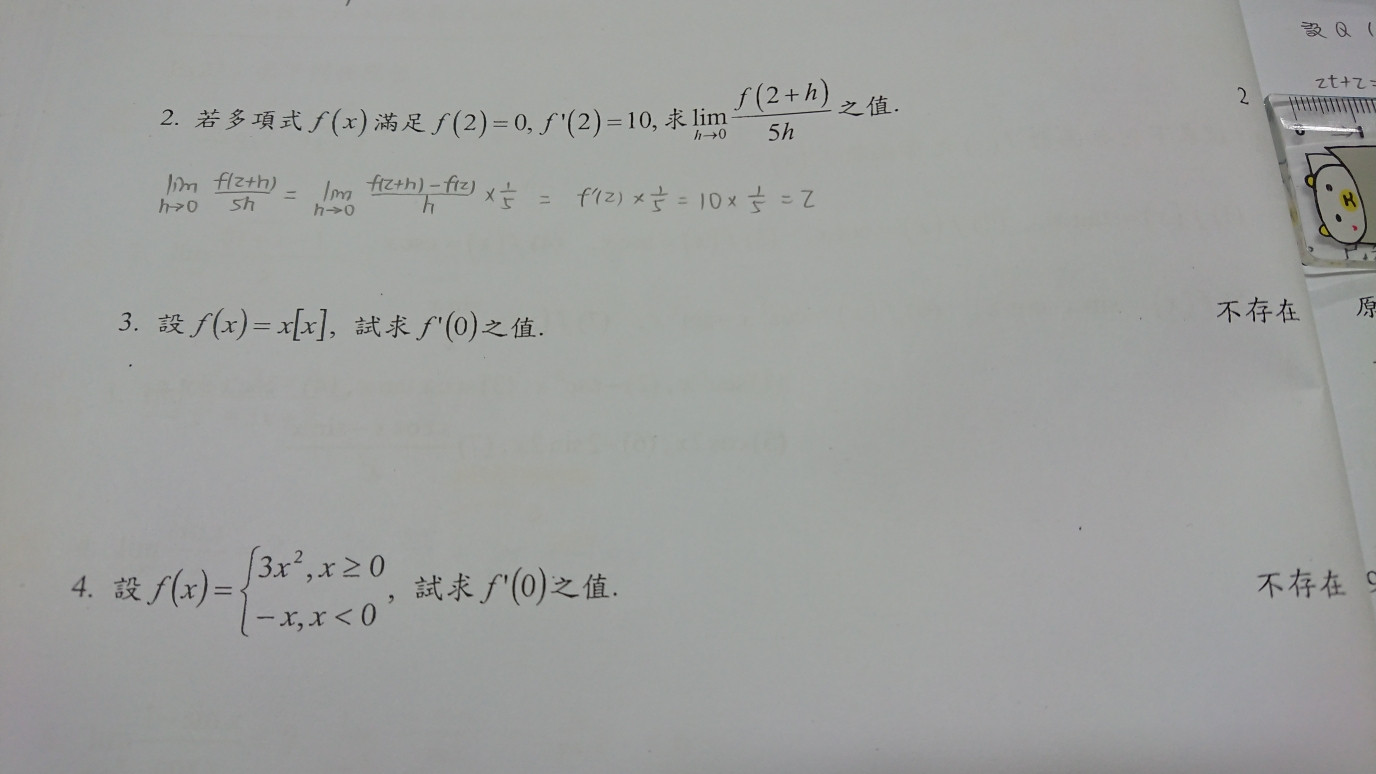 設 Q (
2t+2=
2. 若多項式 f(x) 滿足 f(2)=0, f'(2)=10, 求 lim h→0 f(2+h)/5h 之值.
2
lim h→0 f(2+h)/5h = lim h→0 f(2+h)-f(2)/h × 1/5 = f'(2) × 1/5 = 10 × 1/5 = 2
3. 設 f(x)=x[x], 試求 f'(0)之值.
不存在
原
4. 設 f(x)={3x², x≥0
-x, x<0 , 試求 f'(0)之值.
不存在